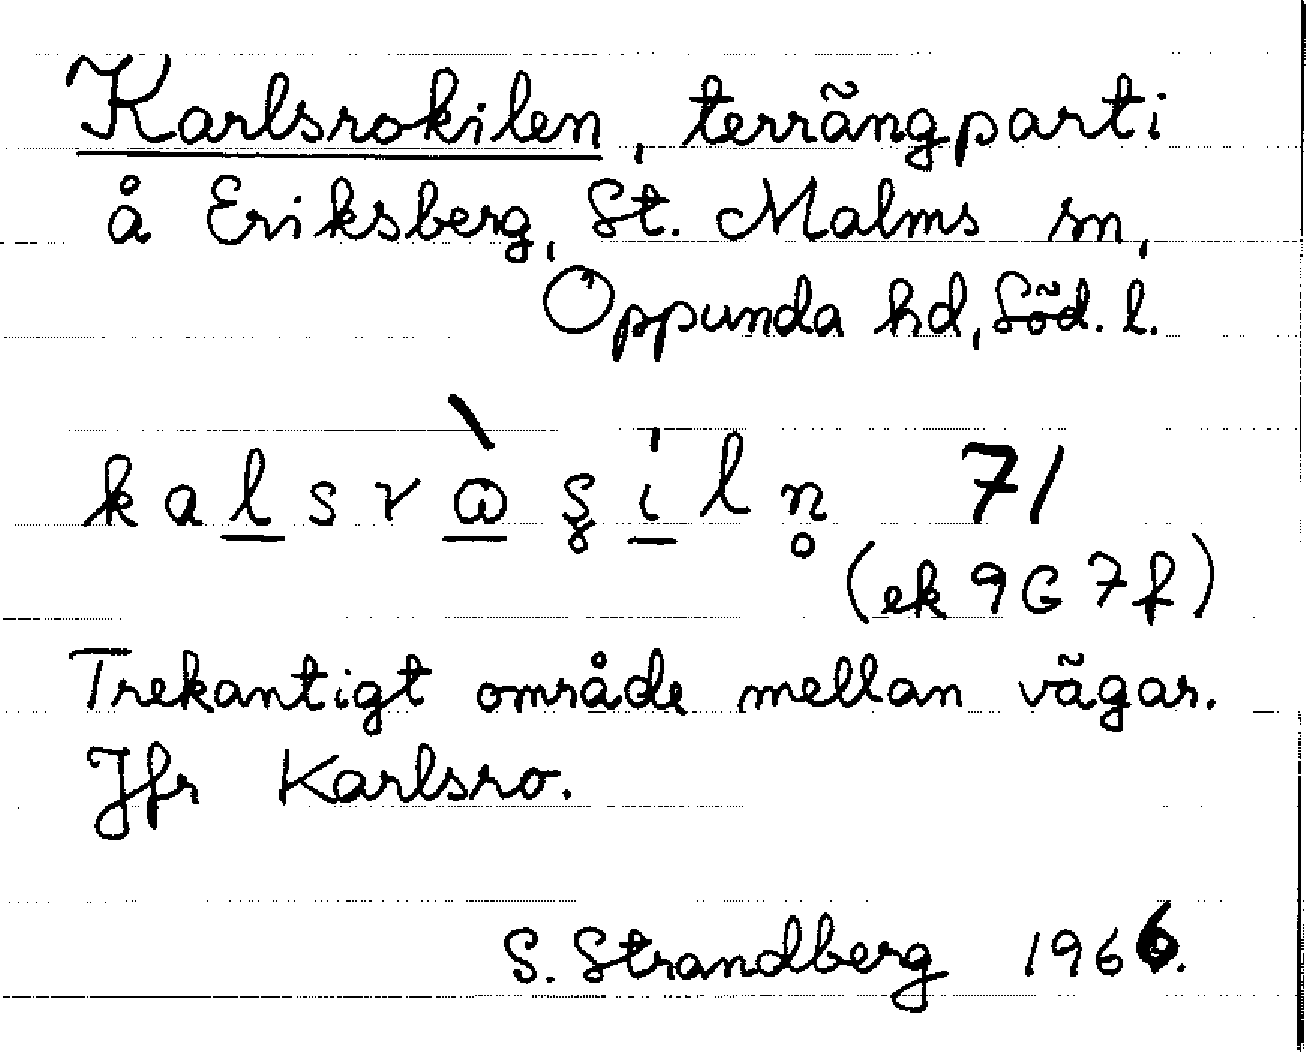 Karlsrokilen, terrängparti
å Eriksberg, St. Malms sn,
Oppunda hd, Söd. l.
kalsrὼşi̍ln̥ 71
(ek 9G 7f)
Trekantigt område mellan vägar.
Jfr Karlsro.
S. Strandberg 1966.